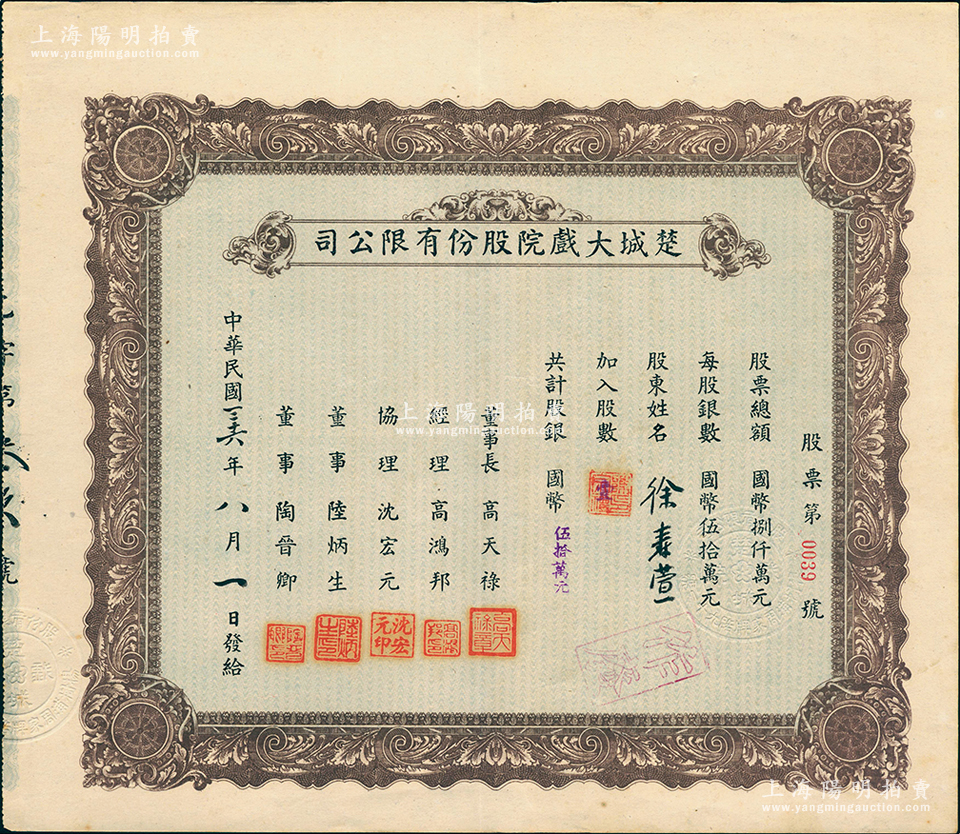 上海陽明拍賣
www.yangmingauction.com
楚城大戲院股份有限公司
股票第 0039 號
股票總額 國幣捌仟萬元
每股銀數 國幣伍拾萬元
股東姓名 徐春萱
加入股數 壹
共計股銀 國幣 伍拾萬元
董事長 高天祿
經理 高鴻邦
協理 沈宏元
董事 陸炳生
董事 陶晉卿
中華民國三十六年八月一日發給
沈宏元印
上海陽明拍賣
www.yangmingauction.com
上海陽明拍賣
www.yangmingauction.com